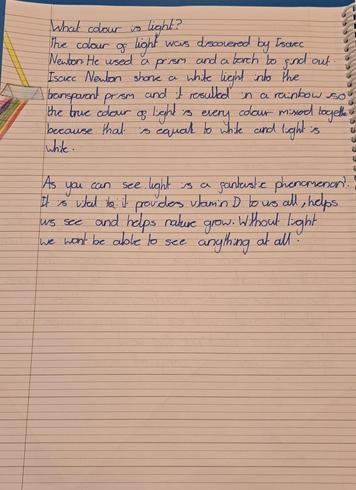 What colour is light?
The colour of light was discovered by Isaac
Newton He used a prism and a torch to find out.
Isaac Newton shone a white light into the
transparent prism and it resulted in a rainbow so
the true colour of light is every colour mixed togethe
because that is equal to white and light is
white.
As you can see light is a fantastic phenomenon!.
It is vital to it providers vitamin D to us all, helps
us see and helps nature grow. Without light
we wont be able to see anything at all.